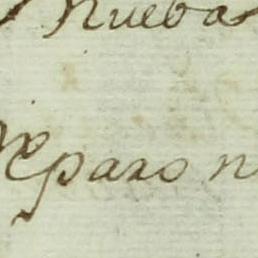 Nueba
Reparo n